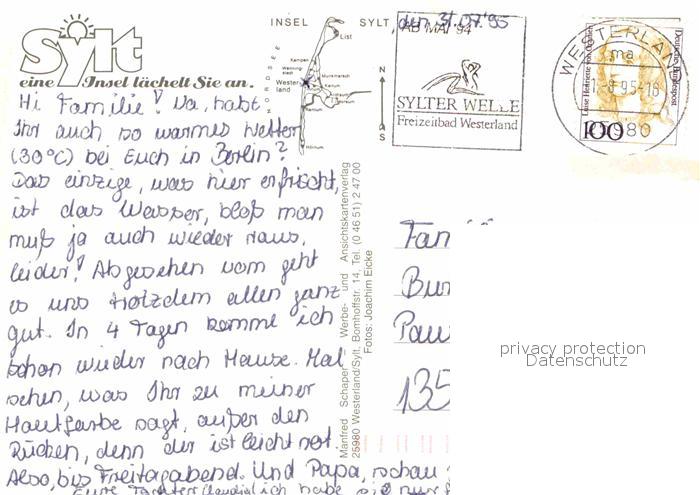 Sylt
eine Insel lächelt Sie an.
INSEL SYLT
List
Kampen
Westerland
Munkmarsch
Keitum
Rantum
Hörnum
N
S
den 31.07.95
AB MAI 94
SYLTER WELLE
Freizeitbad Westerland
WESTERLAND
ma
-8.95-18
25980
Deutsche Bundespost
Luise Henriette von Oranien
100
Hi Familie! Na, habt
Ihr auch so warmes Wetter
(30°C) bei Euch in Berlin?
Das einzige, was hier erfrischt,
ist das Wasser, bloß man
muß ja auch wieder raus,
leider! Abgesehen vom geht
es uns trotzdem allen ganz
gut. In 4 Tagen komme ich
schon wieder nach Hause. Mal
sehen, was Ihr zu meiner
Hautfarbe sagt, außer den
Rücken, denn der ist leicht rot.
Also, bis Freitagabend. Und Papa, schau
Eure Tochter Claudia! ich habe sie nur
Manfred Schaper Werbe- und Ansichtskartenverlag
25980 Westerland/Sylt, Bomhoffstr. 14, Tel. (0 46 51) 2 47 00
Fotos: Joachim Eicke
Fam
Bur
Pau
135
privacy protection
Datenschutz